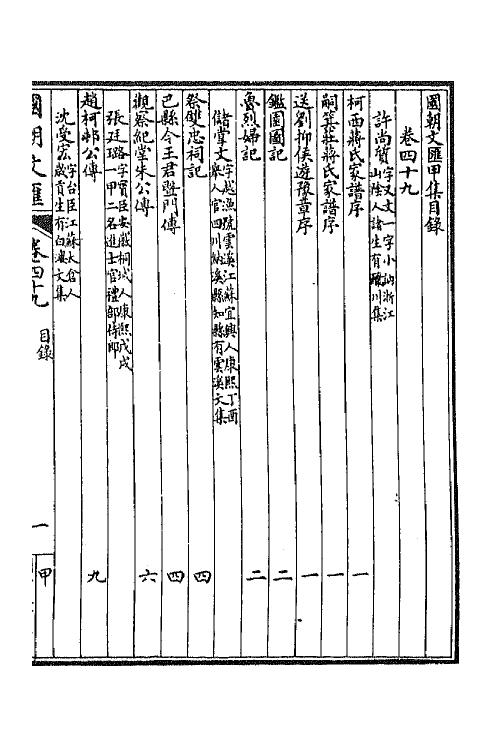 國朝文匯甲集目錄
卷四十九
許尚質 字又文一字小訥浙江
山陰人諸生有釀川集
柯西蔣氏家譜序 一
嗣莊蔣氏家譜序 一
送劉抑侯遊豫章序 一
鑑園圖記 二
魯烈婦記 二
儲掌文 字越漁號雲溪江蘇宜興人康熙丁酉
舉人官四川納溪縣知縣有雲溪文集
祭雙忠祠記 四
巴縣令王君登門傳 四
觀察紀堂朱公傳 六
張廷璐 字寶臣安徽桐城人康熙戊戌
一甲二名進士官禮部侍郎
趙柯邨公傳 九
沈受宏 字台臣江蘇太倉人
歲貢生有白漊文集
國朝文匯 卷四十九 目錄 一 甲